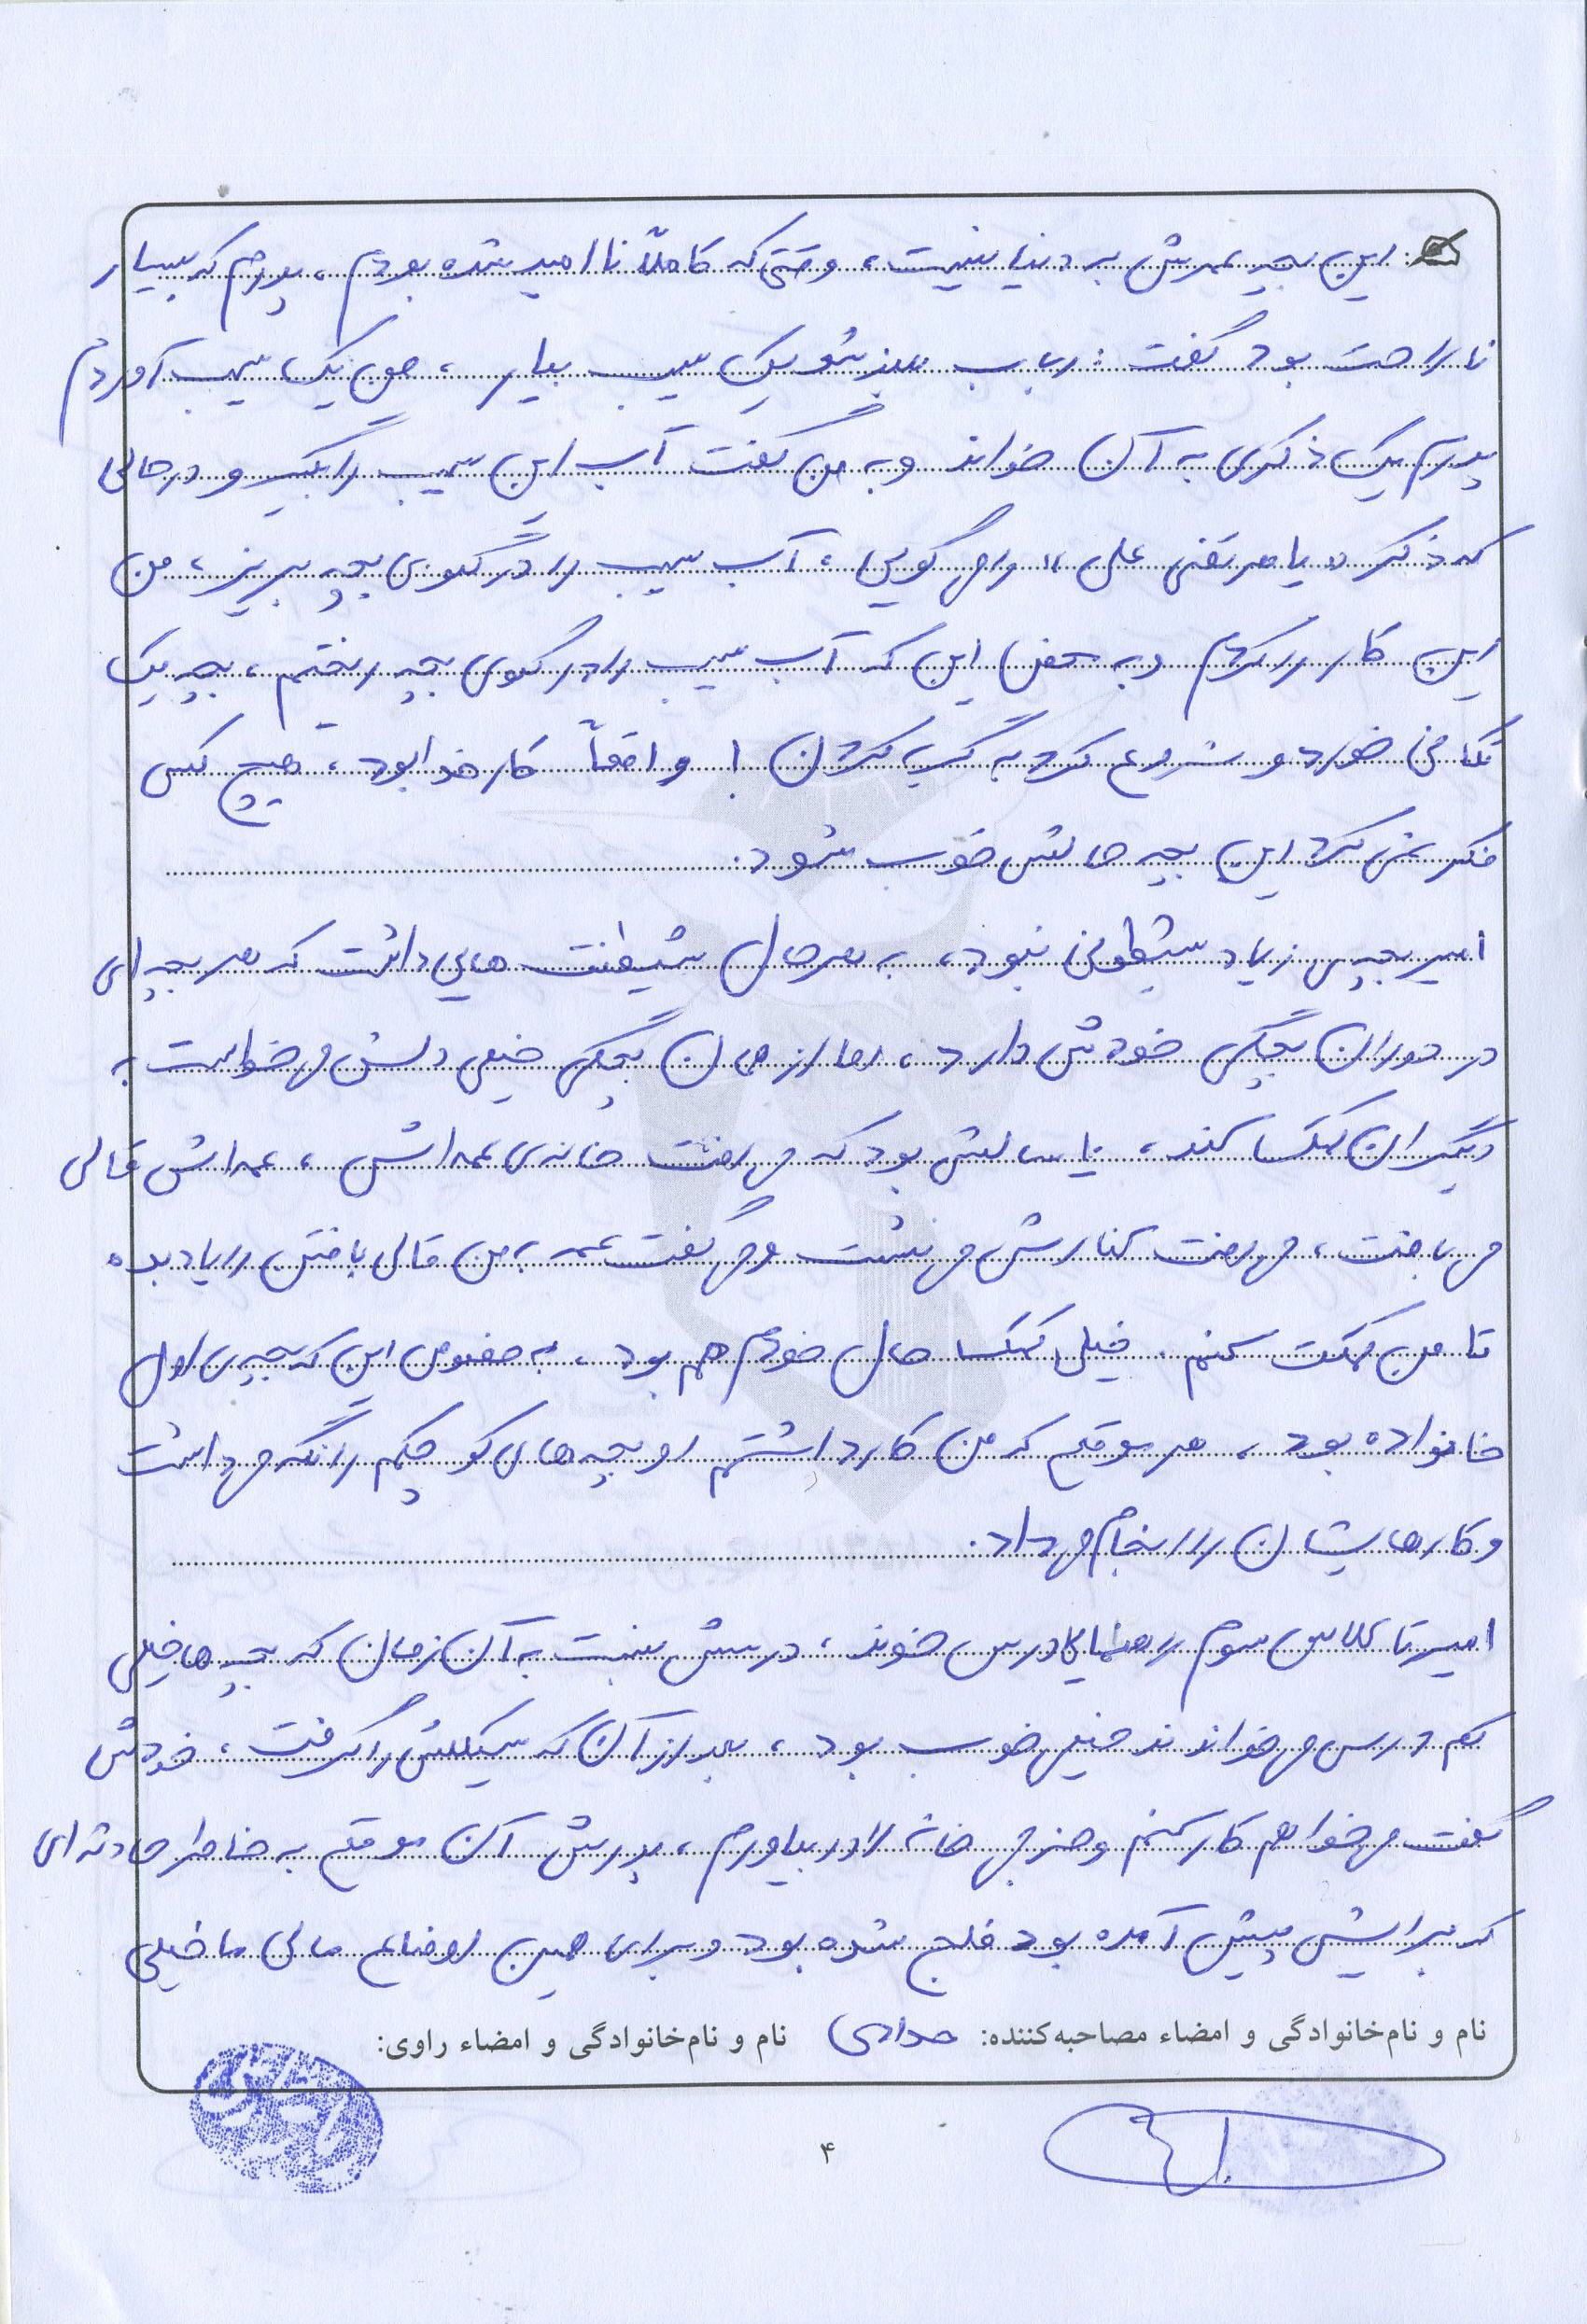 این بچه عمرش به دنیا نیست، وقتی که کاملاً ناامید شده بودم، پدرم که بسیار
ناراحت بود گفت: رباب بلند شو یک سیب بیار، من یک سیب آوردم
پدرم یک ذکری به آن خواند و به من گفت آب این سیب را بگیر و در حالی
که ذکر «یا مرتضی علی» را می گویی، آب سیب را در گلوی بچه بریز، من
این کار را کردم و به محض این که آب سیب را در گلوی بچه ریختم، بچه یک
تکانی خورد و شروع کرد به گریه کردن! واقعاً کار خدا بود، هیچ کس
فکر نمی کرد این بچه حالش خوب شود.
امیر بچه ی زیاد شیطونی نبود، به هر حال شیطنت هایی داشت که هر بچه ای
در دوران بچگی خودش دارد، اما از همان بچگی خیلی دلش می خواست به
دیگران کمک کند، سالش بود که می رفت خانه ی عمه اش، عمه اش قالی
می بافت، می رفت کنارش می نشست و می گفت عمه به من قالی بافتن را یاد بده
تا من کمکت کنم. خیلی کمک حال خودم هم بود، به خصوص این که بچه ی اول
خانواده بود، هر موقع که من کار داشتم او بچه های کوچکم را نگه می داشت
و کارهایشان را انجام می داد.
امیر تا کلاس سوم راهنمایی درس خوند، درسش نسبت به آن زمان که بچه ها خیلی
کم درس می خواندند خیلی خوب بود، بعد از آن که سیکلش را گرفت، خودش
گفت می خواهم کار کنم و خرجی خانه را در بیاورم، پدرش آن موقع به خاطر حادثه ای
که برایش پیش آمده بود فلج شده بود و برای همین اوضاع مالی ما خیلی
نام و نام‌خانوادگی و امضاء مصاحبه‌کننده: حدادی نام و نام‌خانوادگی و امضاء راوی:
۴